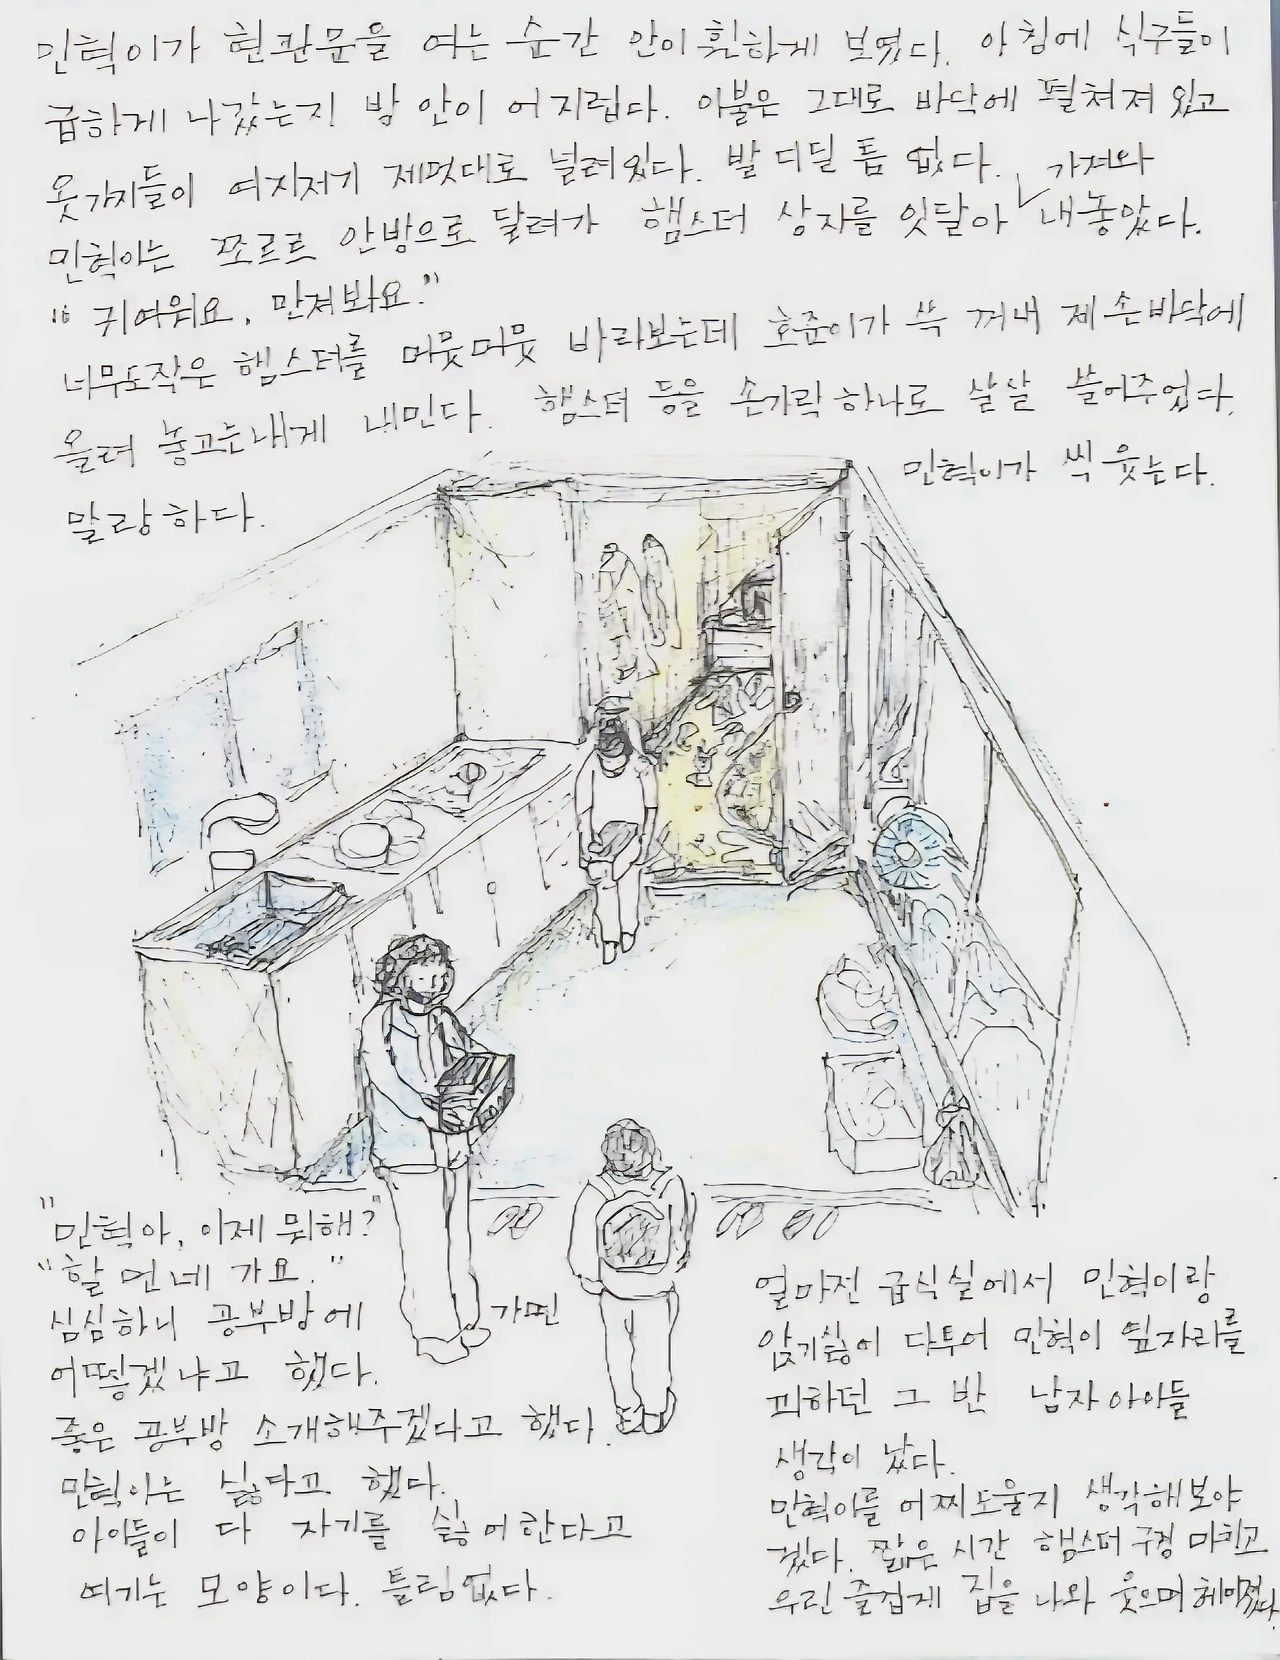 민혁이가 현관문을 여는 순간 안이 휜하게 보였다. 아침에 식구들이
급하게 나갔는지 방 안이 어지럽다. 이불은 그대로 바닥에 펼쳐져 있고
옷가지들이 여지저기 제멋대로 널려있다. 발 디딜 틈 없다.
가져와
민혁이는 쪼르르 안방으로 달려가 햄스터 상자를 잇달아 내놓았다.
"귀여워요. 만져봐요."
너무도작은 햄스터를 머뭇머뭇 바라보는데 호준이가 쓱 꺼내 제 손바닥에
올려 놓고는내게 내민다. 햄스터 등을 손가락 하나로 살살 쓸어주었다.
말랑하다.
민혁이가 씩 웃는다.
"민혁아, 이제 뭐해?"
"할 먼네 가요."
심심하니 공부방에 가면
어떻겠냐고 했다.
좋은 공부방 소개해주겠다고 했다.
민혁이는 싫다고 했다.
아이들이 다 자기를 싫어한다고
여기는 모양이다. 틀림없다.
얼마전 급식실에서 민혁이랑
앉기싫어 다투어 민혁이 옆자리를
피하던 그 반 남자아이들
생각이 났다.
민혁이를 어찌도울지 생각해보야
겠다. 짧은 시간 햄스터 구경 마치고
우린 즐겁게 집을 나와 웃으며 헤어졌다.